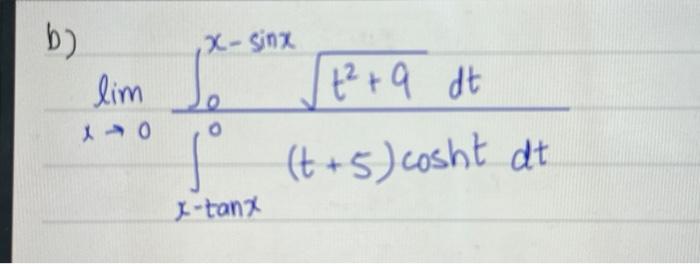 b)
lim x → 0 ∫₀^{x - sinx} √(t² + 9) dt
∫_{x-tanx}^{0} (t + 5) cosht dt